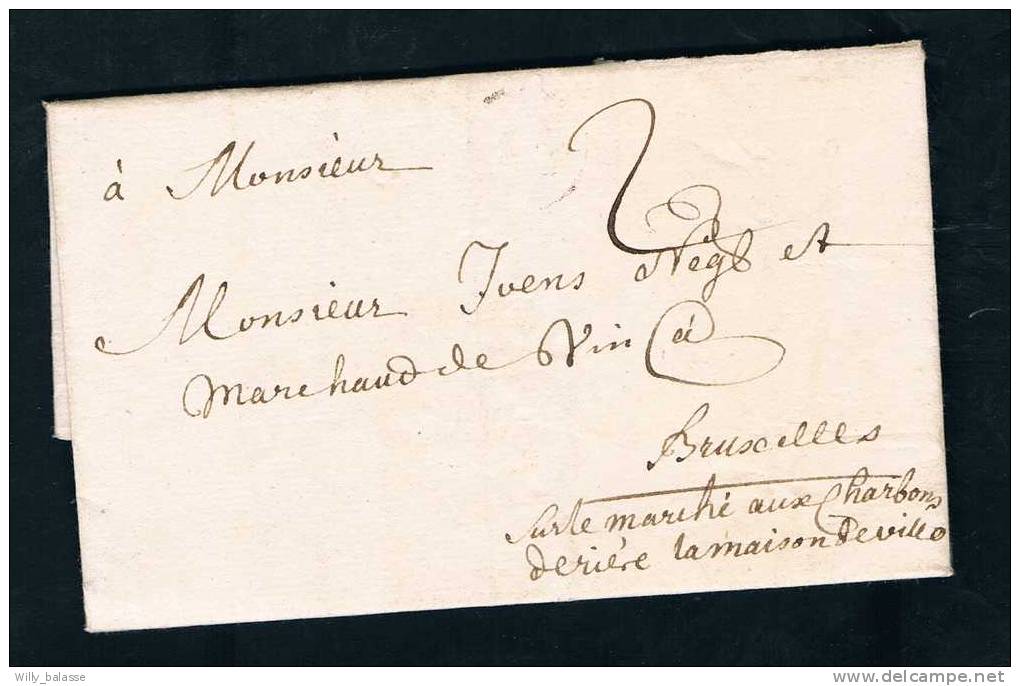 à Monsieur
2
Monsieur Ivens Negt et
Marchand de Vin à
Bruxelles
sur le marché aux Charbons
deriére la maison de ville
Willy_balasse
delcampe.net